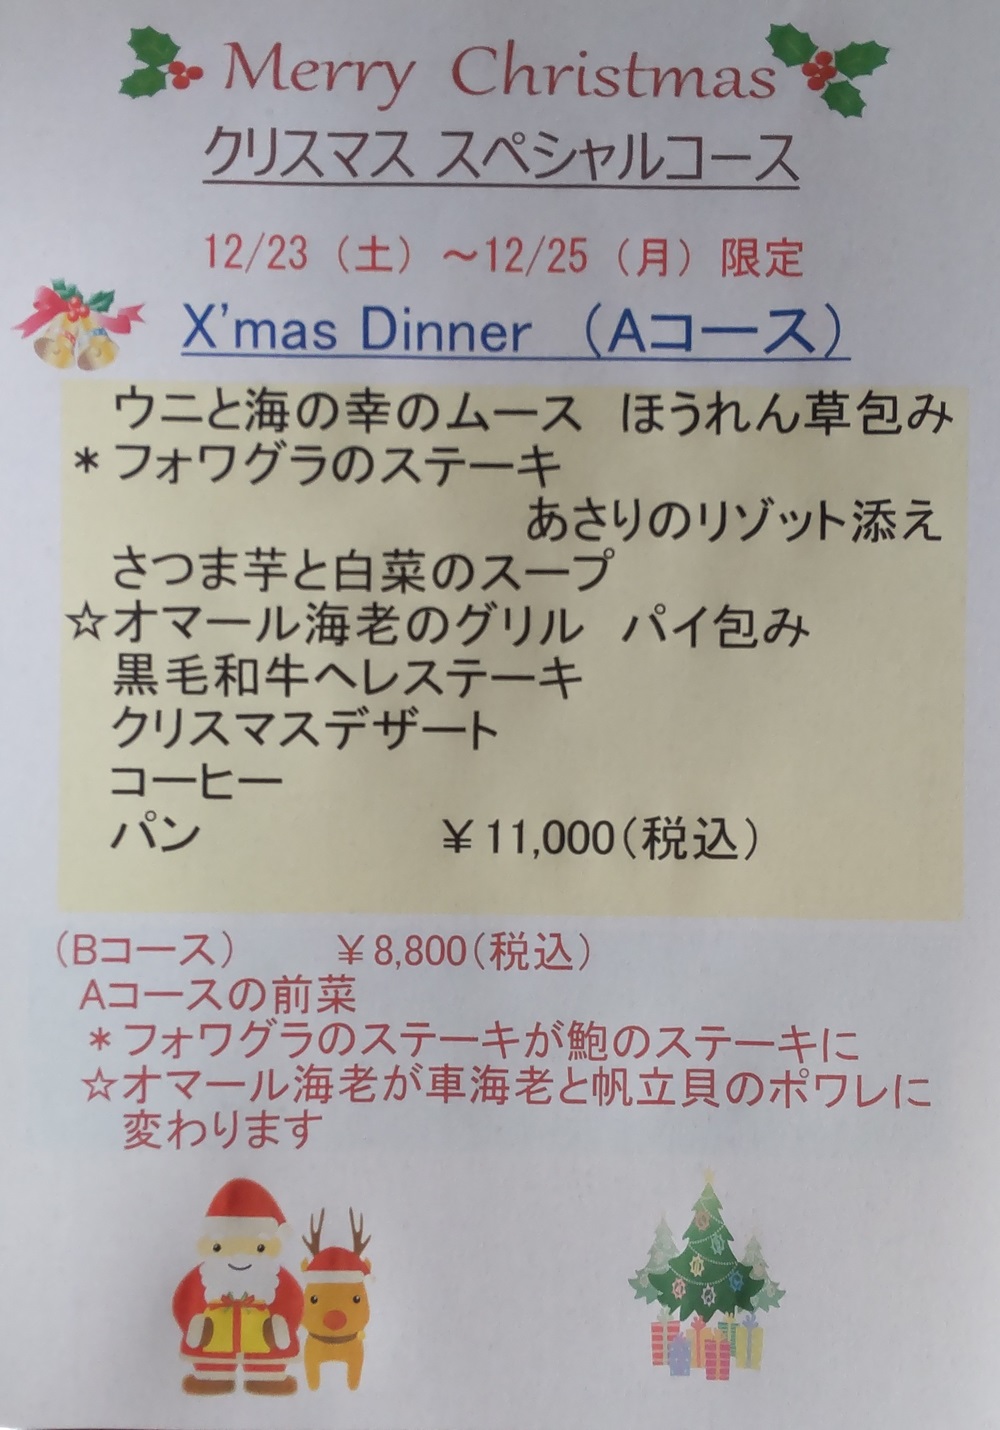 Merry Christmas
クリスマス スペシャルコース
12/23（土）～12/25（月）限定
X'mas Dinner （Aコース）
ウニと海の幸のムース　ほうれん草包み
＊フォワグラのステーキ
あさりのリゾット添え
さつま芋と白菜のスープ
☆オマール海老のグリル　パイ包み
黒毛和牛ヘレステーキ
クリスマスデザート
コーヒー
パン　￥11,000（税込）
（Bコース）　￥8,800（税込）
Aコースの前菜
＊フォワグラのステーキが鮑のステーキに
☆オマール海老が車海老と帆立貝のポワレに
変わります